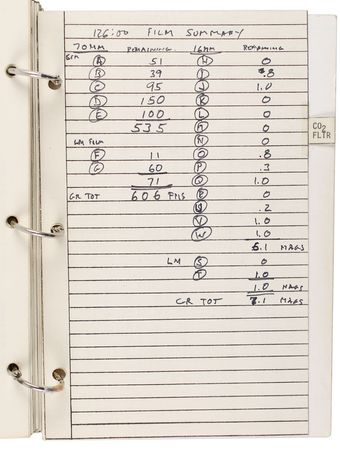 126:00 FILM SUMMARY
70MM REMAINING 16MM REMAINING
A 51 H 0
B 39 I .8
C 95 J 1.0
D 150 K 0
E 100 L 0
535 M 0
N 0
LM FILM
F 11 O .8
G 60 P .3
71 Q 1.0
GR TOT 606 FMS R 0
U .2
V 1.0
W 1.0
MAGS
LM S 0
T 1.0
1.0 MAGS
GR TOT 7.1 MAGS
CO2
FLTR